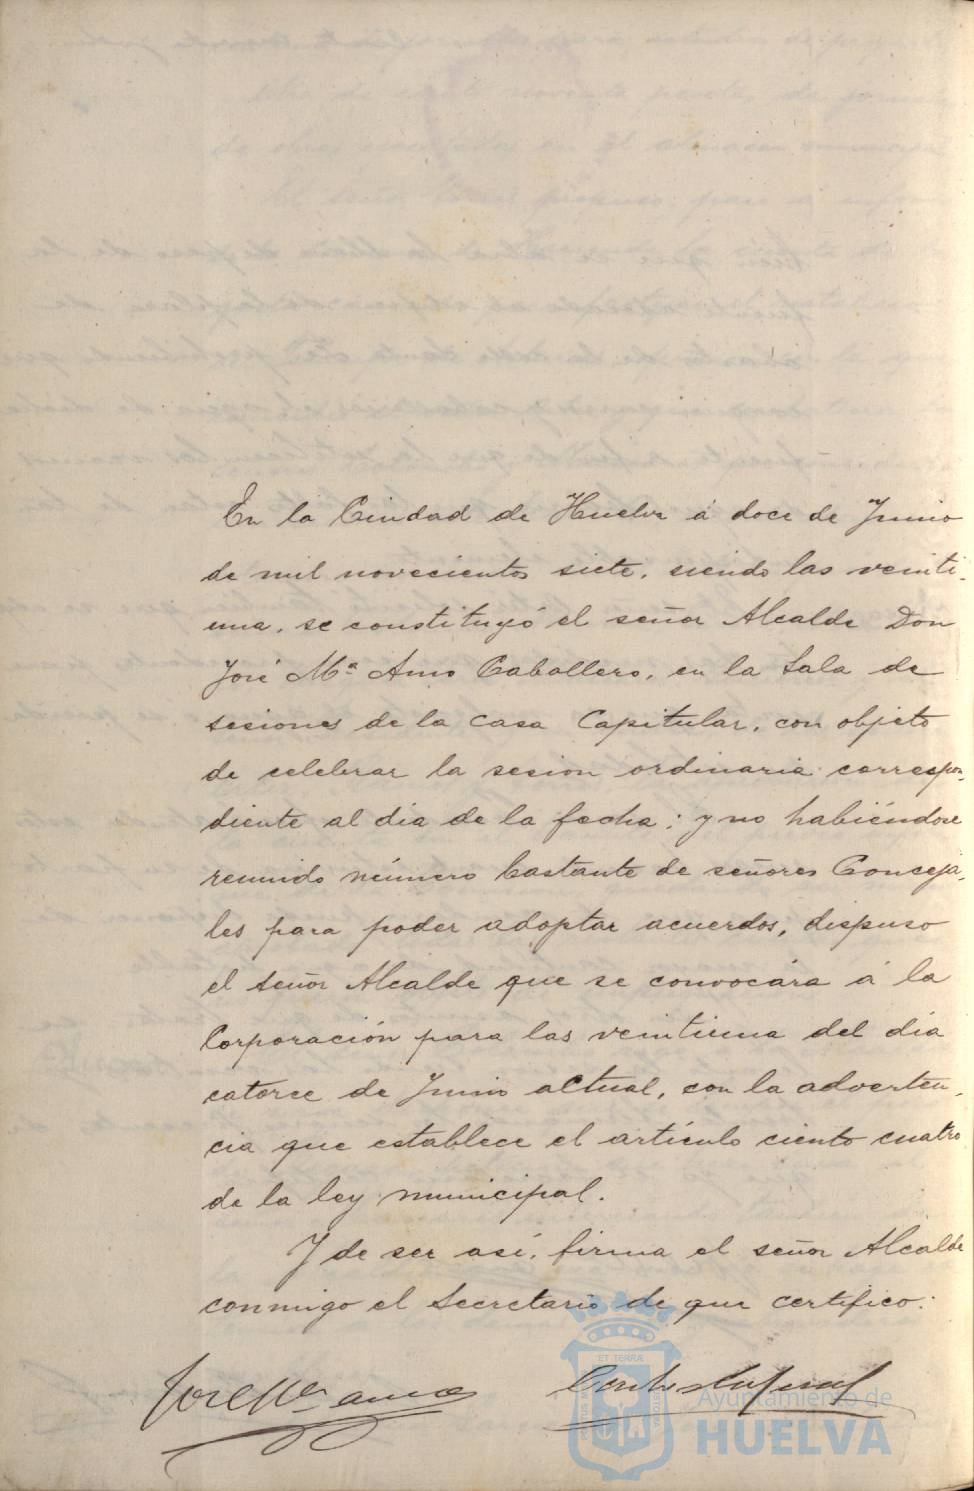 En la Ciudad de Huelva á doce de Junio
de mil novecientos siete, siendo las veinti-
una, se constituyó el señor Alcalde Don
José Mª Amo Caballero, en la Sala de
sesiones de la Casa Capitular, con objeto
de celebrar la sesion ordinaria correspon-
diente al dia de la fecha; y no habiéndose
reunido número bastante de señores Conceja-
les para poder adoptar acuerdos, dispuso
el Señor Alcalde que se convocára á la
Corporación para las veintiuna del día
catorce de Junio actual, con la adverten-
cia que establece el artículo ciento cuatro
de la ley municipal.
Y de ser así, firma el señor Alcalde
conmigo el Secretario de que certifico:
José Mª Amo
Ayuntamiento de
HUELVA